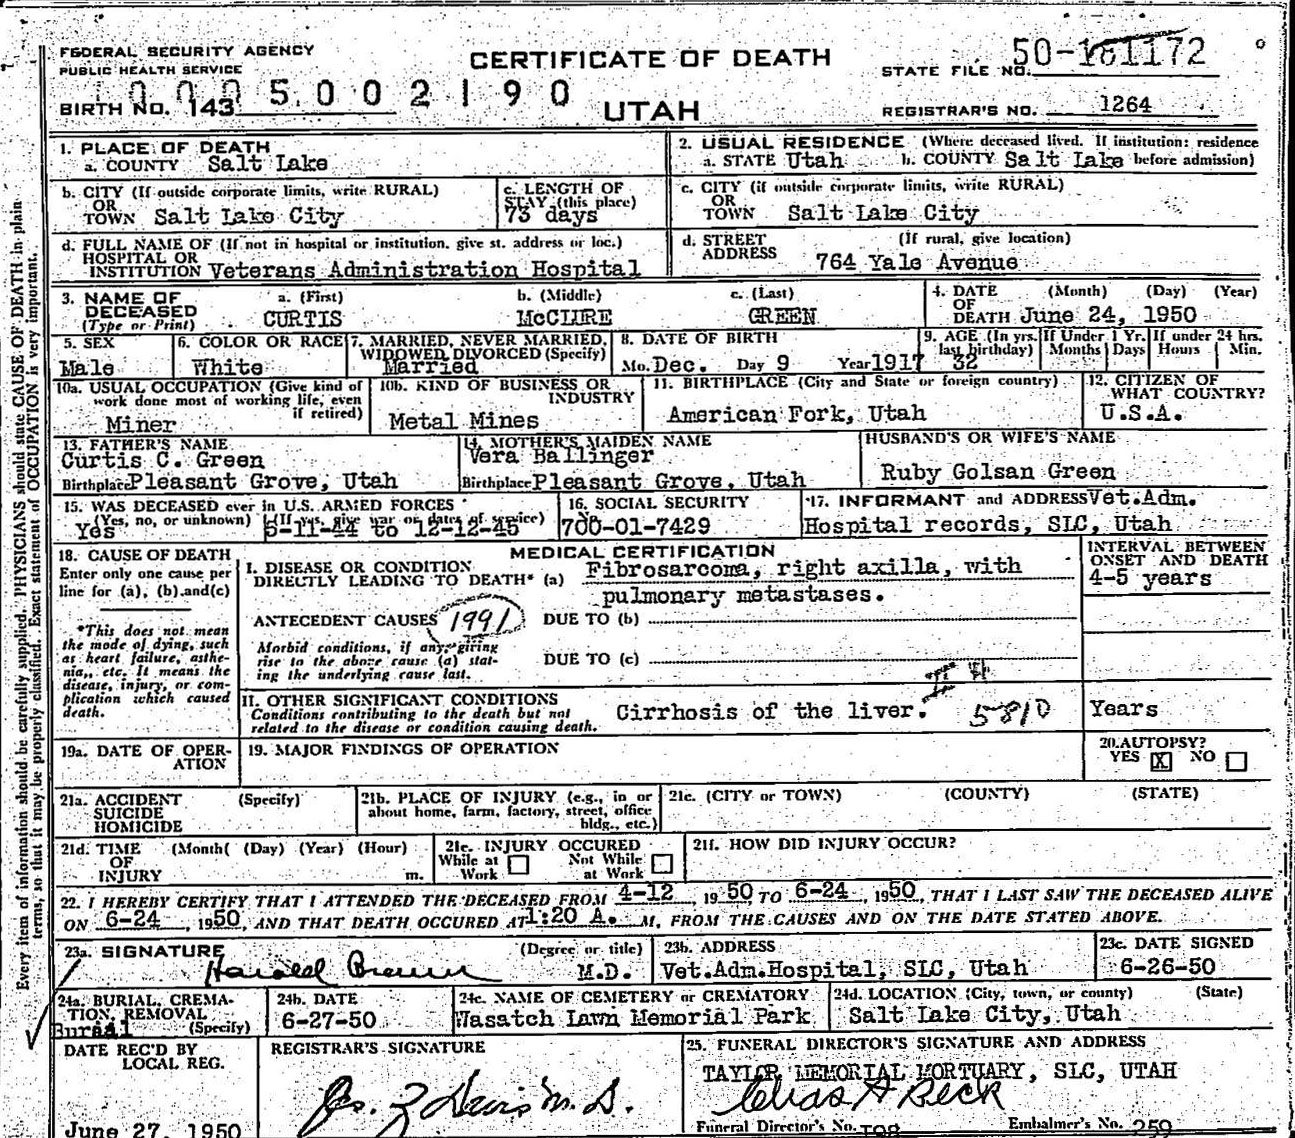 FEDERAL SECURITY AGENCY
PUBLIC HEALTH SERVICE
CERTIFICATE OF DEATH
UTAH
STATE FILE NO.
50-181172
0005002190
BIRTH NO. 143
REGISTRAR'S NO. 1264
Every item of information should be carefully supplied. PHYSICIANS should state CAUSE OF DEATH in plain
terms, so that it may be properly classified. Exact statement of OCCUPATION is very important.
1. PLACE OF DEATH
a. COUNTY Salt Lake
2. USUAL RESIDENCE (Where deceased lived. If institution: residence
a. STATE Utah b. COUNTY Salt Lake before admission)
b. CITY (If outside corporate limits, write RURAL)
OR
TOWN Salt Lake City
c. LENGTH OF
STAY (this place)
73 days
c. CITY (if outside corporate limits, write RURAL)
OR
TOWN Salt Lake City
d. FULL NAME OF (If not in hospital or institution, give st. address or loc.)
HOSPITAL OR
INSTITUTION Veterans Administration Hospital
d. STREET (If rural, give location)
ADDRESS 764 Yale Avenue
3. NAME OF
DECEASED
(Type or Print)
a. (First) b. (Middle) c. (Last)
CURTIS McCLURE GREEN
4. DATE (Month) (Day) (Year)
OF
DEATH June 24, 1950
5. SEX
Male
6. COLOR OR RACE
White
7. MARRIED, NEVER MARRIED,
WIDOWED, DIVORCED (Specify)
Married
8. DATE OF BIRTH
Mo. Dec. Day 9 Year 1917
9. AGE (In yrs. last birthday)
32
If Under 1 Yr.
Months Days
If under 24 hrs.
Hours Min.
10a. USUAL OCCUPATION (Give kind of
work done most of working life, even
if retired)
Miner
10b. KIND OF BUSINESS OR
INDUSTRY
Metal Mines
11. BIRTHPLACE (City and State or foreign country)
American Fork, Utah
12. CITIZEN OF
WHAT COUNTRY?
U.S.A.
13. FATHER'S NAME
Curtis C. Green
Birthplace Pleasant Grove, Utah
14. MOTHER'S MAIDEN NAME
Vera Ballinger
Birthplace Pleasant Grove, Utah
HUSBAND'S OR WIFE'S NAME
Ruby Golsan Green
15. WAS DECEASED ever in U.S. ARMED FORCES
(Yes, no, or unknown) (If yes, give war or dates of service)
Yes 5-11-44 to 12-12-45
16. SOCIAL SECURITY
700-01-7429
17. INFORMANT and ADDRESS Vet.Adm.
Hospital records, SLC, Utah
18. CAUSE OF DEATH
Enter only one cause per
line for (a), (b), and (c)
*This does not mean
the mode of dying, such
as heart failure, asthe-
nia, etc. It means the
disease, injury, or com-
plication which caused
death.
MEDICAL CERTIFICATION
I. DISEASE OR CONDITION
DIRECTLY LEADING TO DEATH* (a) Fibrosarcoma, right axilla, with
pulmonary metastases.
ANTECEDENT CAUSES 1991 DUE TO (b)
Morbid conditions, if any, giving
rise to the above cause (a) stat-
ing the underlying cause last.
DUE TO (c)
II. OTHER SIGNIFICANT CONDITIONS
Conditions contributing to the death but not
related to the disease or condition causing death.
Cirrhosis of the liver. 5810
INTERVAL BETWEEN
ONSET AND DEATH
4-5 years
Years
19a. DATE OF OPER-
ATION
19. MAJOR FINDINGS OF OPERATION
20. AUTOPSY?
YES X NO
21a. ACCIDENT (Specify)
SUICIDE
HOMICIDE
21b. PLACE OF INJURY (e.g., in or
about home, farm, factory, street, office
bldg., etc.)
21c. (CITY or TOWN) (COUNTY) (STATE)
21d. TIME (Month( (Day) (Year) (Hour)
OF
INJURY m.
21e. INJURY OCCURED
While at Work Not While at Work
21f. HOW DID INJURY OCCUR?
22. I HEREBY CERTIFY THAT I ATTENDED THE DECEASED FROM 4-12, 1950 TO 6-24, 1950, THAT I LAST SAW THE DECEASED ALIVE
ON 6-24, 1950, AND THAT DEATH OCCURED AT 1:20 A. M, FROM THE CAUSES AND ON THE DATE STATED ABOVE.
23a. SIGNATURE (Degree or title)
Harold Brown M.D.
23b. ADDRESS
Vet.Adm.Hospital, SLC, Utah
23c. DATE SIGNED
6-26-50
24a. BURIAL, CREMA-
TION, REMOVAL
(Specify)
Burial
24b. DATE
6-27-50
24c. NAME OF CEMETERY or CREMATORY
Wasatch Lawn Memorial Park
24d. LOCATION (City, town, or county) (State)
Salt Lake City, Utah
DATE REC'D BY
LOCAL REG.
June 27, 1950
REGISTRAR'S SIGNATURE
25. FUNERAL DIRECTOR'S SIGNATURE AND ADDRESS
TAYLOR MEMORIAL MORTUARY, SLC, UTAH
Beck
Funeral Director's No. Embalmer's No. 259